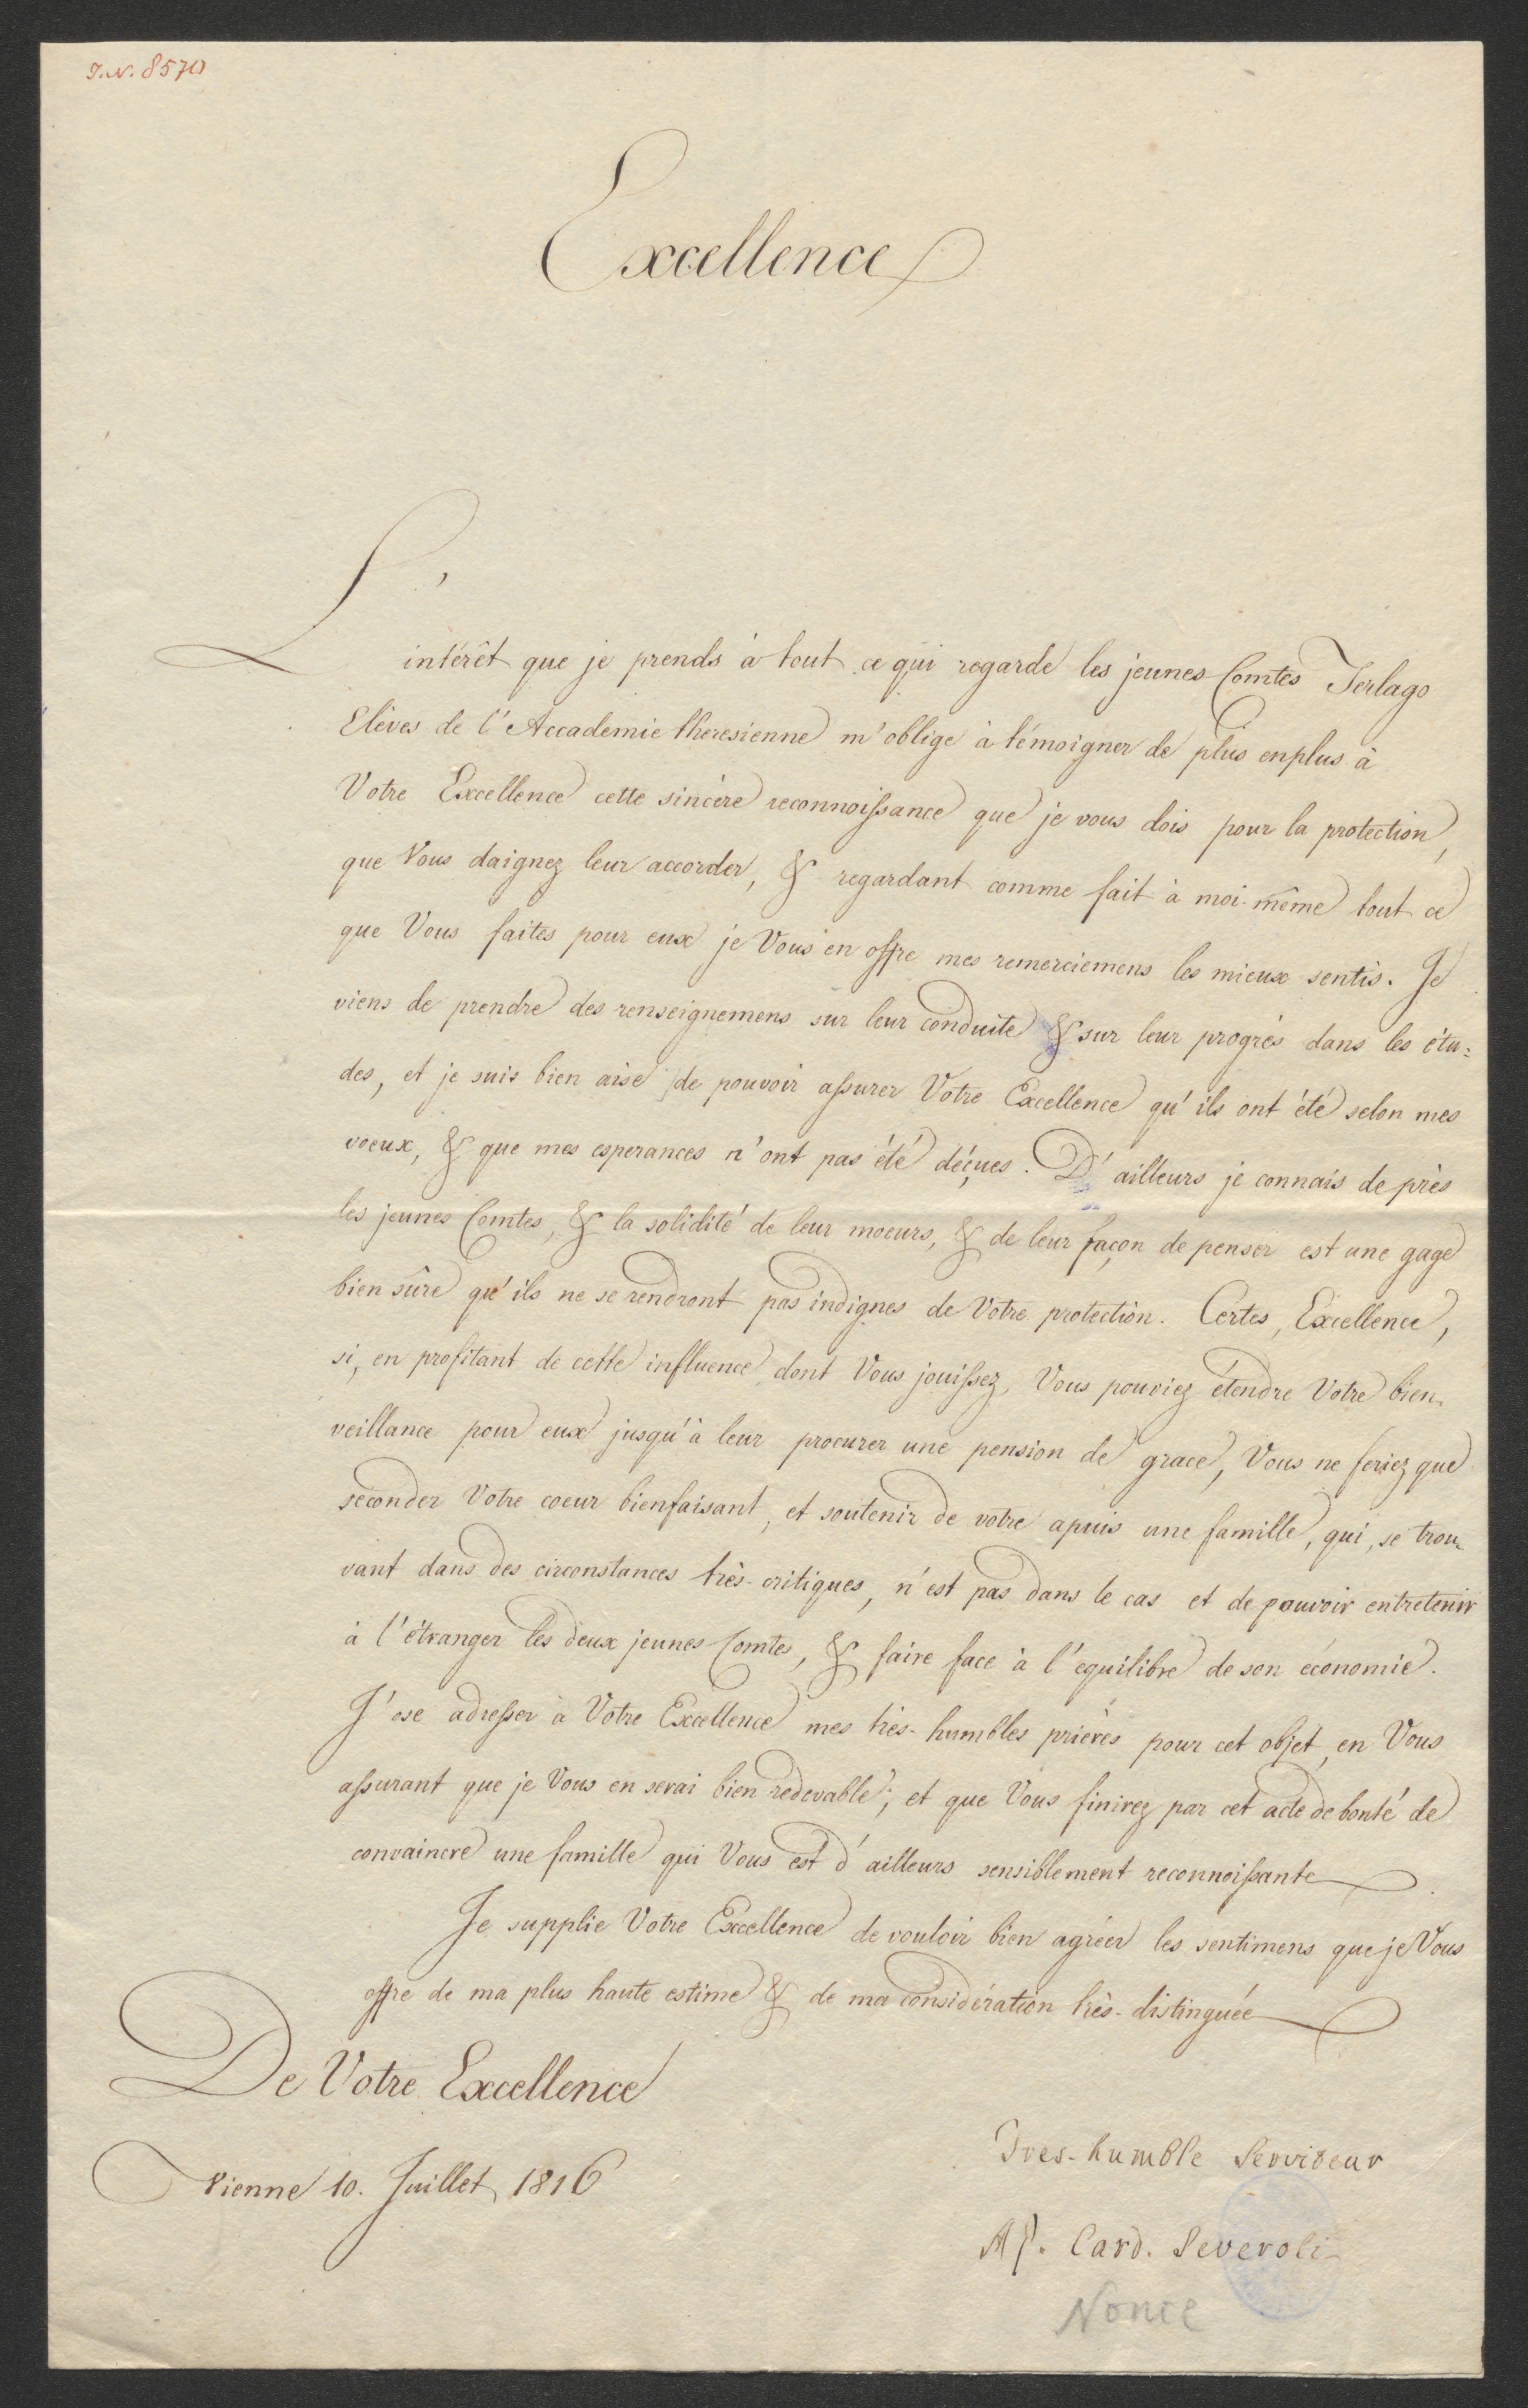 J.N. 8570
Excellence
L'
intérêt que je prends à tout ce qui regarde les jeunes Comtes Terlago
Elèves de l'Accademie theresienne m'oblige à témoigner de plus enplus à
Votre Excellence cette sincère reconnoissance que je vous dois pour la protection,
que Vous daignez leur accorder, & regardant comme fait à moi-même tout ce
que Vous faites pour eux je Vous en offre mes remerciemens les mieux sentis. Je
viens de prendre des renseignemens sur leur conduite & sur leur progrès dans les étu=
des, et je suis bien aise de pouvoir assurer Votre Excellence qu'ils ont été selon mes
voeux, & que mes esperances n'ont pas été déçues. D'ailleurs je connais de près
les jeunes Comtes, & la solidité de leur moeurs, & de leur façon de penser est une gage
bien sûre qu'ils ne se rendront pas indignes de Votre protection. Certes, Excellence,
si, en profitant de cette influence dont Vous jouissez, Vous pouviez étendre Votre bien-
veillance pour eux jusqu'à leur procurer une pension de grace, Vous ne feriez que
seconder Votre coeur bienfaisant, et soutenir de votre apuis une famille, qui, se trou-
vant dans des circonstances très-critiques, n'est pas dans le cas et de pouvoir entretenir
à l'étranger les deux jeunes Comtes, & faire face à l'equilibre de son économie.
J'ose adresser à Votre Excellence mes très-humbles prières pour cet objet, en Vous
assurant que je Vous en serai bien redevable; et que Vous finirez par cet acte de bonté de
convaincre une famille qui Vous est d'ailleurs sensiblement reconnoissante
Je supplie Votre Excellence de vouloir bien agréer les sentimens que je Vous
offre de ma plus haute estime & de ma considération très-distinguée
De Votre Excellence
Vienne 10. Juillet 1816
Tres-humble Serviteur
Card. Severoli
Nonce